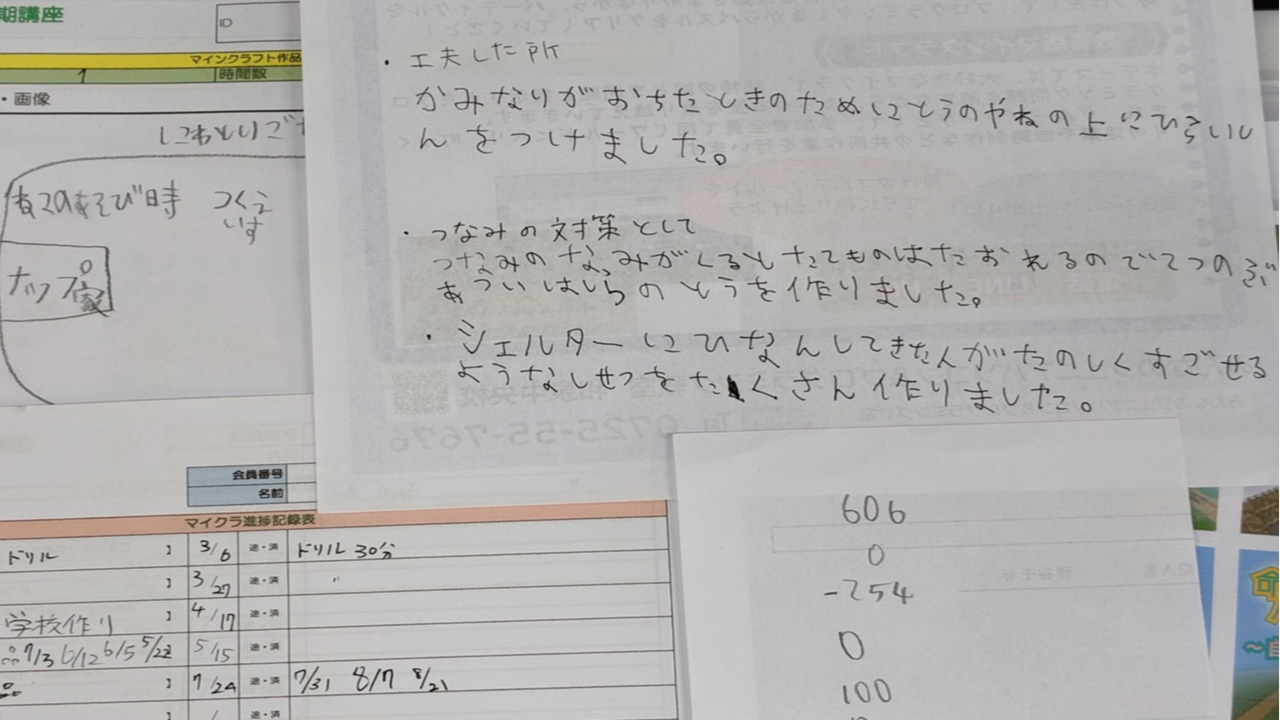 期講座
ID
マインクラフト作品
1
時間数
・画像
にわとりご
ねこのあそび時 つくえ
いす
ナップ家
・工夫した所
かみなりがおちたときのためにとうのやねの上にひらいし
んをつけました。
・つなみの対策として
つなみのなみがくるとたてものはたおれるのでてつのぶ
あついはしらのとうを作りました。
・シェルターにひなんしてきた人がたのしくすごせる
ようなしせつをたくさん作りました。
0725-55-7676
会員番号
名前
マイクラ進捗記録表
ドリル 3/6 途・済 ドリル 30分
3/27 途・済 〃
学校作り 4/17 途・済
品7/3 6/12 6/5 5/22 5/15 途・済
品 7/24 途・済 7/31 8/7 8/21
途・済
606
0
-254
0
100